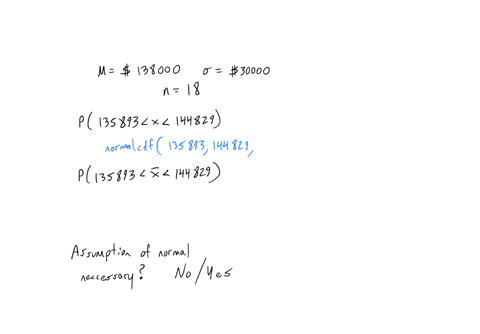 M = $ 138000 σ = $30000
n = 18
P( 135893 < x < 144829)
normalcdf( 135893, 144829,
P( 135893 < x̄ < 144829)
Assumption of normal
neccessary? No / Yes